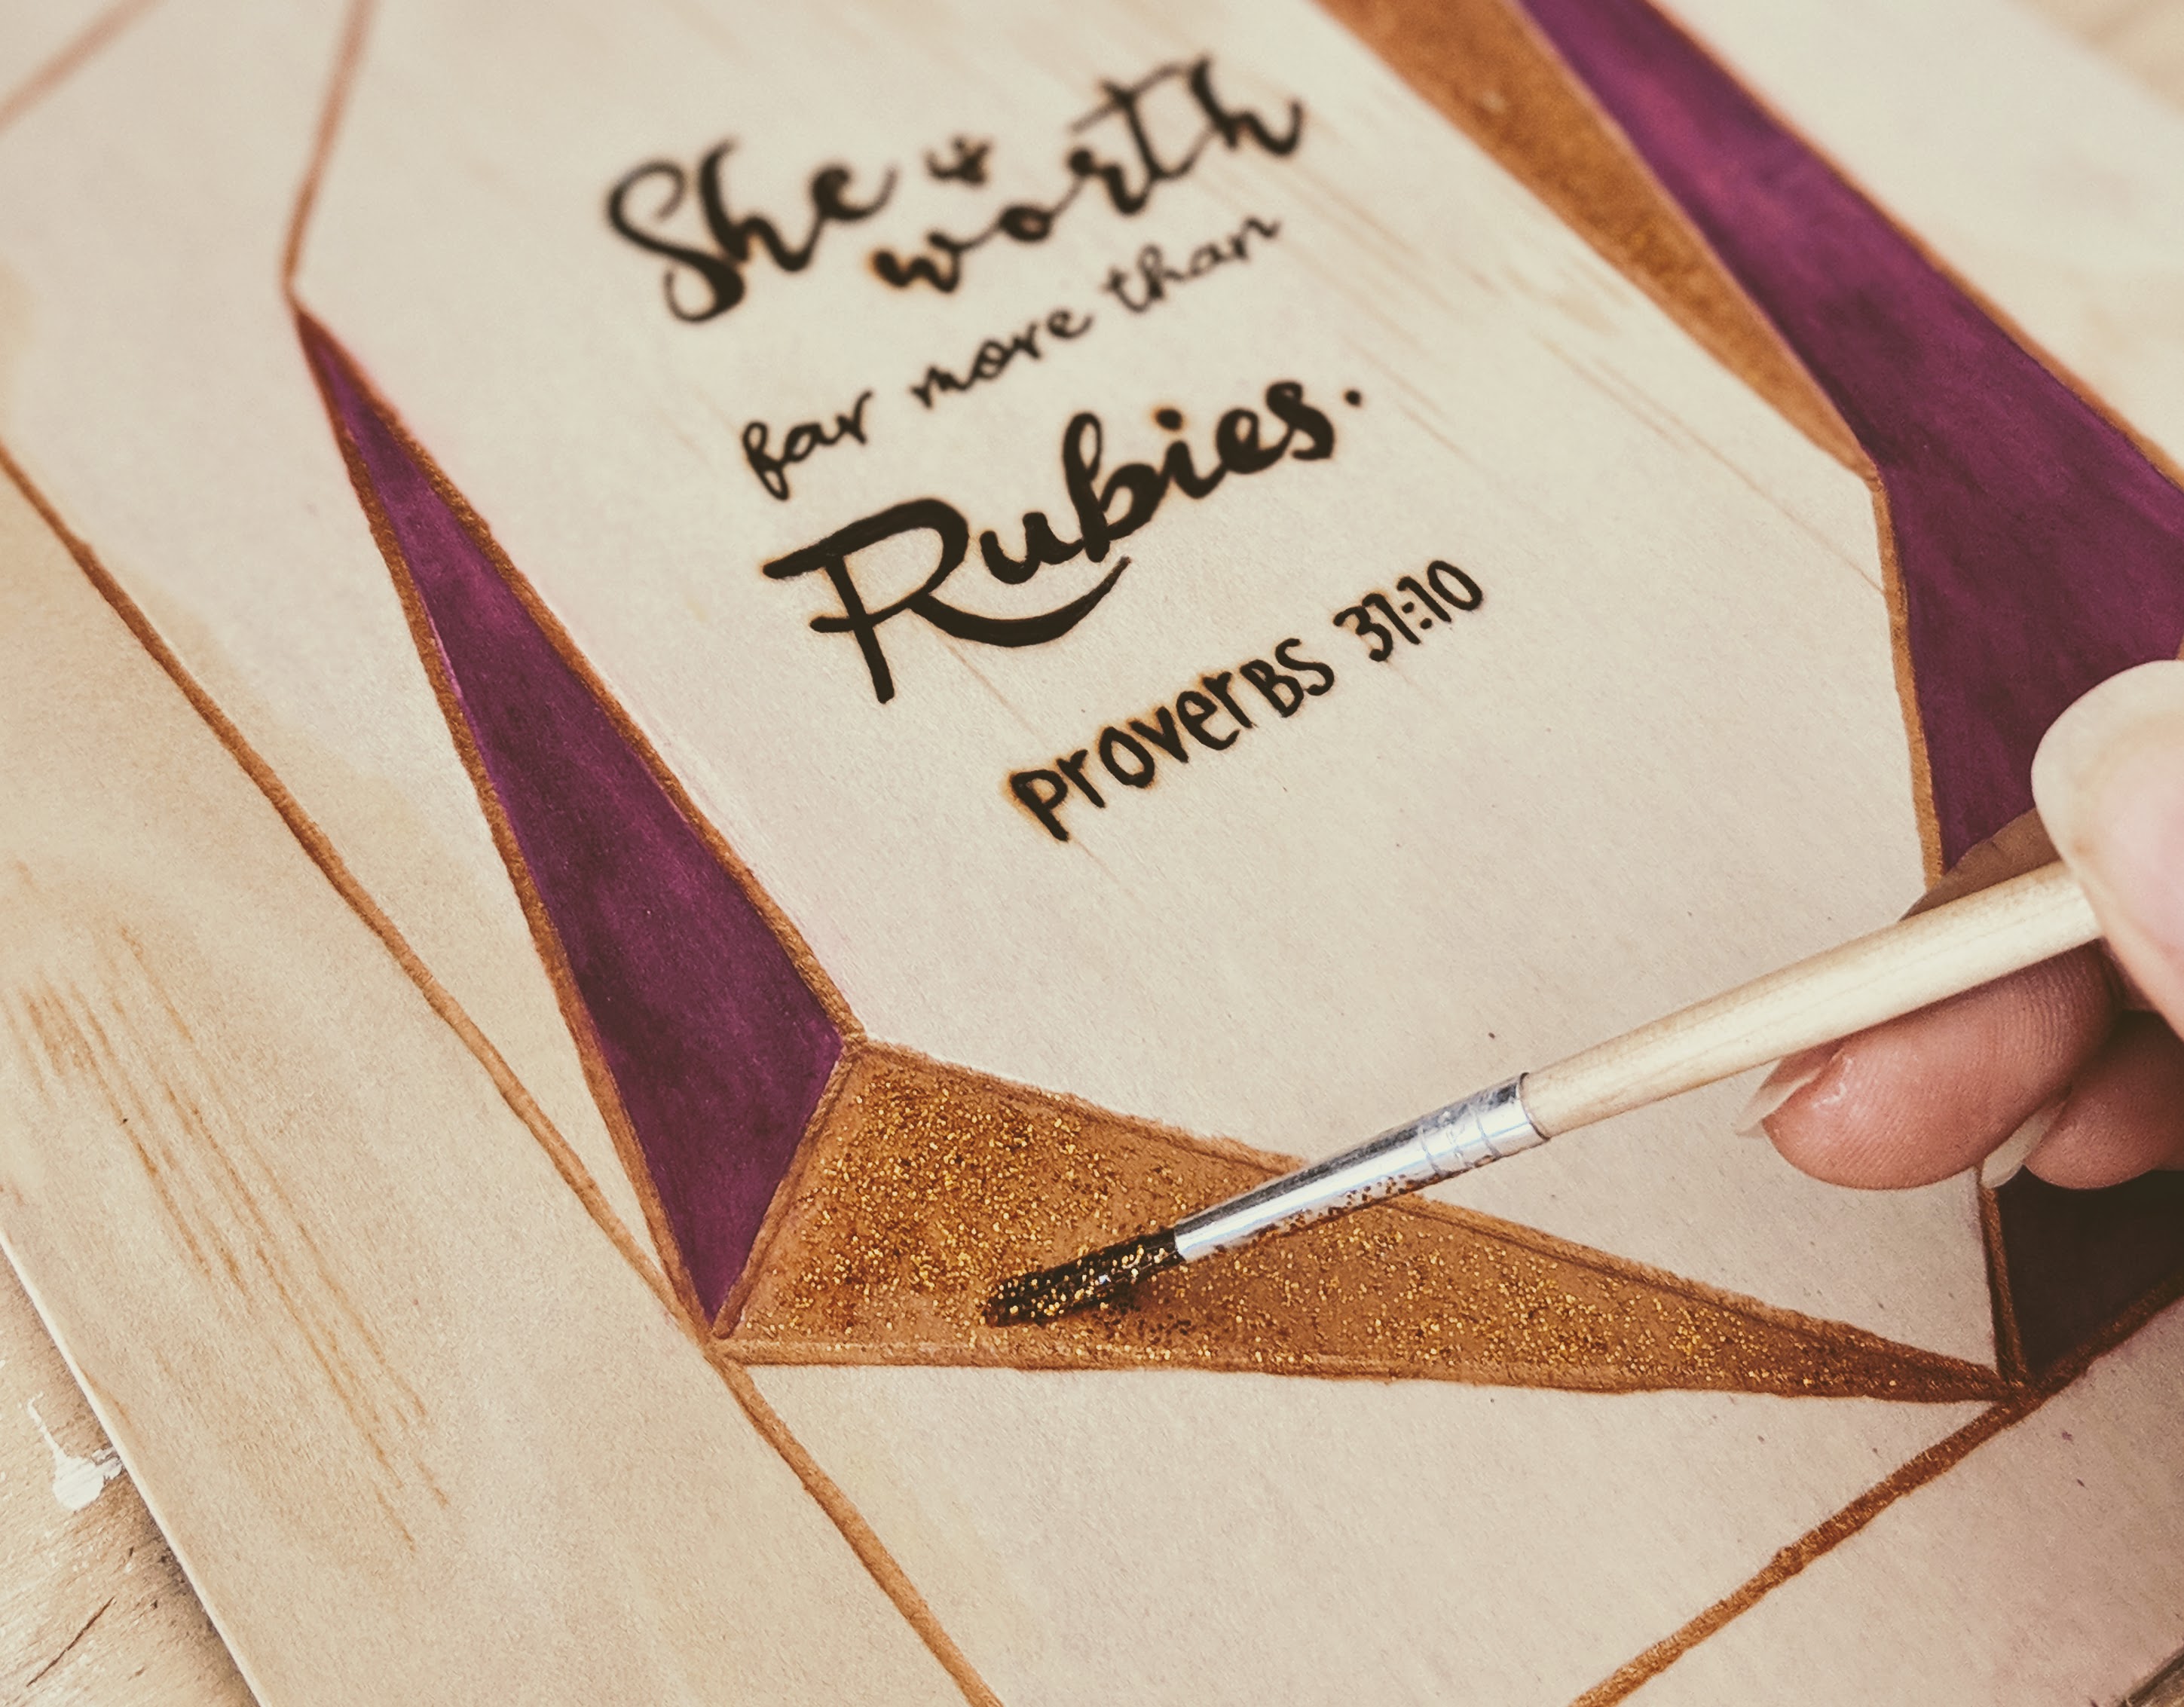 She is worth
far more than
Rubies.
proverBS 31:10